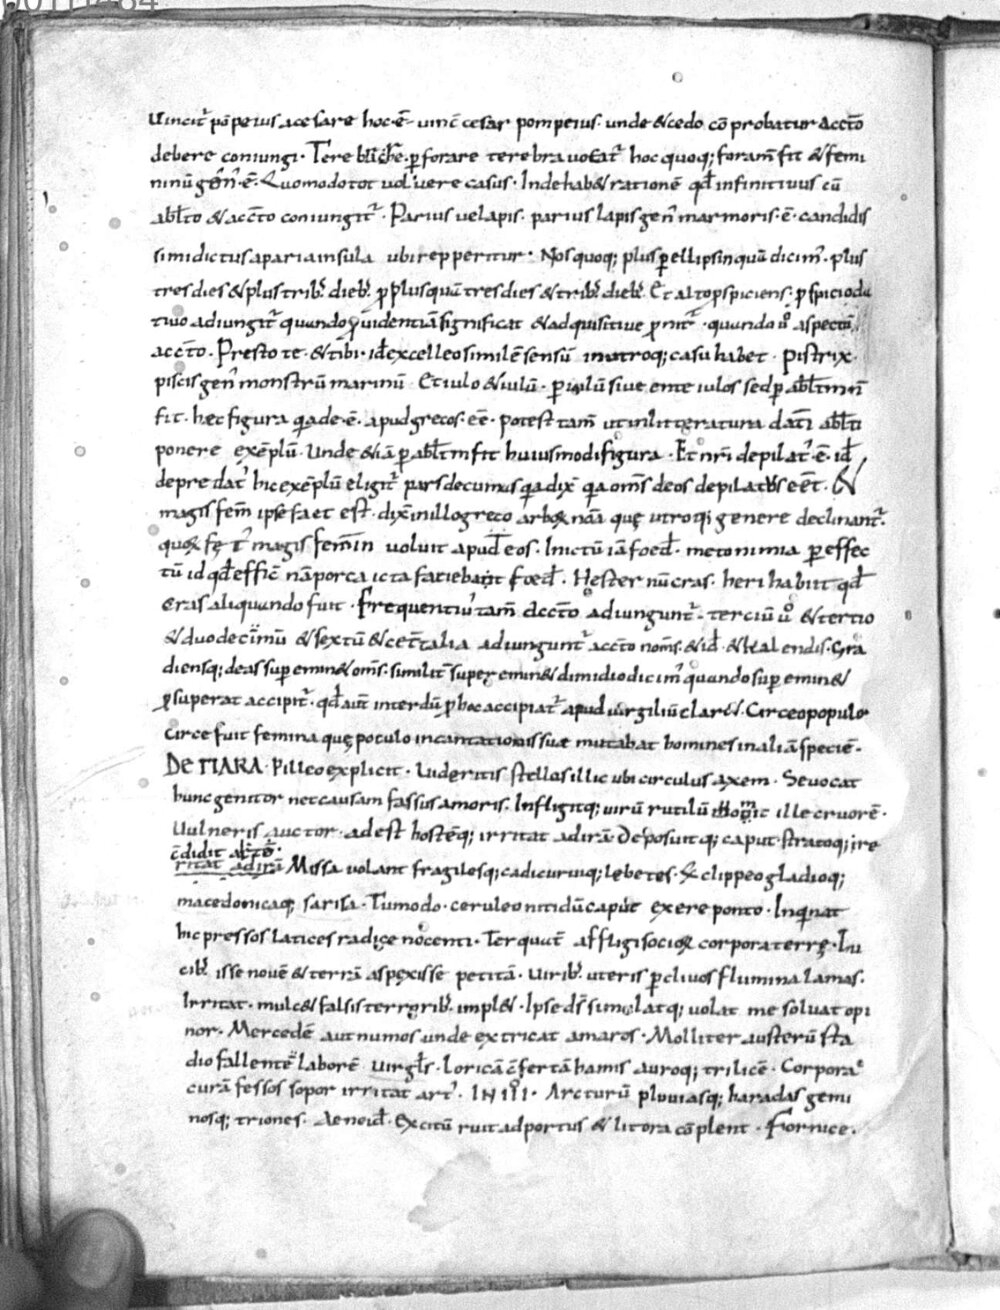 Uincit᷑ pōpeius acesare hoc·ē· uinc̄ cesar pompeius· unde & cedo cō probatur accto
debere coniungi· Tere forare terebra uocat᷑ hoc quoq; foram̄ fit & femi
ninū gen·ē· Quomodo tot uoluere casus· Inde hab& rationē qd̄ infinitiuus cū
ablto & accto coniungit᷑· Parius uel apis· parius lapis gen̄ marmoris·ē· candidis
simi dictus a paria insula ubi repperitur· Nos quoq; plus ꝑ ellipsin quā dicim᷑· plus
tres dies & plus trib; dieb; ꝓ plus quā tres dies & trib; dieb; Et
adiungit᷑ quando ꝓuidentiā significat & adquisitiue ꝓ quando uͦ aspectū
accto· Presto te· & tibi· id excelleo similē sensū in utroq; casu habet· Pistrix
piscis gen̄ monstrū marinū· Et iulo & iulū· ꝑ iulū siue ente iulos sed ꝑ
fit· hęc figura qa de·ē· apud grecos·eē· potest tam̄ ut in litteratura dati ablti
ponere exēplū· Unde & iā ꝑ fit huiusmodi figura· Et depilat᷑·ē· id
depredat᷑ hic exēplū eligit᷑ pars decumus qa dix̄ qa om̄s deos depilatos eēt· &
magis fem̄ ipse faet est· dix̄ in illo greco arboꝝ nāa quę utroq; genere declinant᷑·
quoꝝ magis feminin uoluit apud eos· Inictū iā foed· metonimia ꝑ effec
tū id qd̄ effic̄ nā porca icta faciebant foed· Hester nū cras· heri habuit qd̄
cras aliquando fuit· Frequentiu᷑ tam̄ accto adiungunt᷑· terciū uͦ & tertio
& duodecimū & sextū & cet̄ talia adiungunt᷑ accto nom̄s· & id· & kalendis· Gra
diensq; deas sup emin& om̄s· similit᷑ super emin& dimidio dicim᷑ quando sup emin&
ꝓ superat accipit᷑· qd̄ aut̄ interdū ꝓ hoc accipiat᷑ apud uirgiliū claret· Circeo populo
Circe fuit femina quę poculo incantationis suę mutabat homines in aliā speciē·
De TIARA· Pilleo explicit· Uideritis stellas illic ubi circulus axem· Seuocat
hunc genitor nec causam fassus amoris. Infligitq; uirū rutilū ille cruorē·
Uulneris auctor· adest hostēq; irritat ad irā Deposuitq; caput· stratoq; ire
c̄didit
ritat ad irā Missa uolant fragilesq; cadi curuiq; lebetes· Et clippeo gladioq;
macedoniaq; sarisa· Tu modo· ceruleo nitidū caput exere ponto· Inqinat
hic pressos latices radice nocenti· Ter quat̄ affligi socioꝝ corpora terrę· Lu
cib; isse nouē & terrā aspexisse petitā· Uirib; uteris ꝑ cliuos flumina lamas·
Irritat· mulc& falsis terrorib; impl&· Ipse ds̄ simulatq; uolat me soluat opi
nor· Mercedē aut numos unde extricat amaros· Molliter austerū stu
dio fallente laborē· Uirgls̄· Loricā c̄sertā hamis auroq; trilicē· Corpora
curā fessos sopor irritat art᷑· IN III· Arcturū pluuiasq; hyadas gemi
nosq; triones· Aeneid· Excitū ruit ad portus & litora cōplent· Fornice·